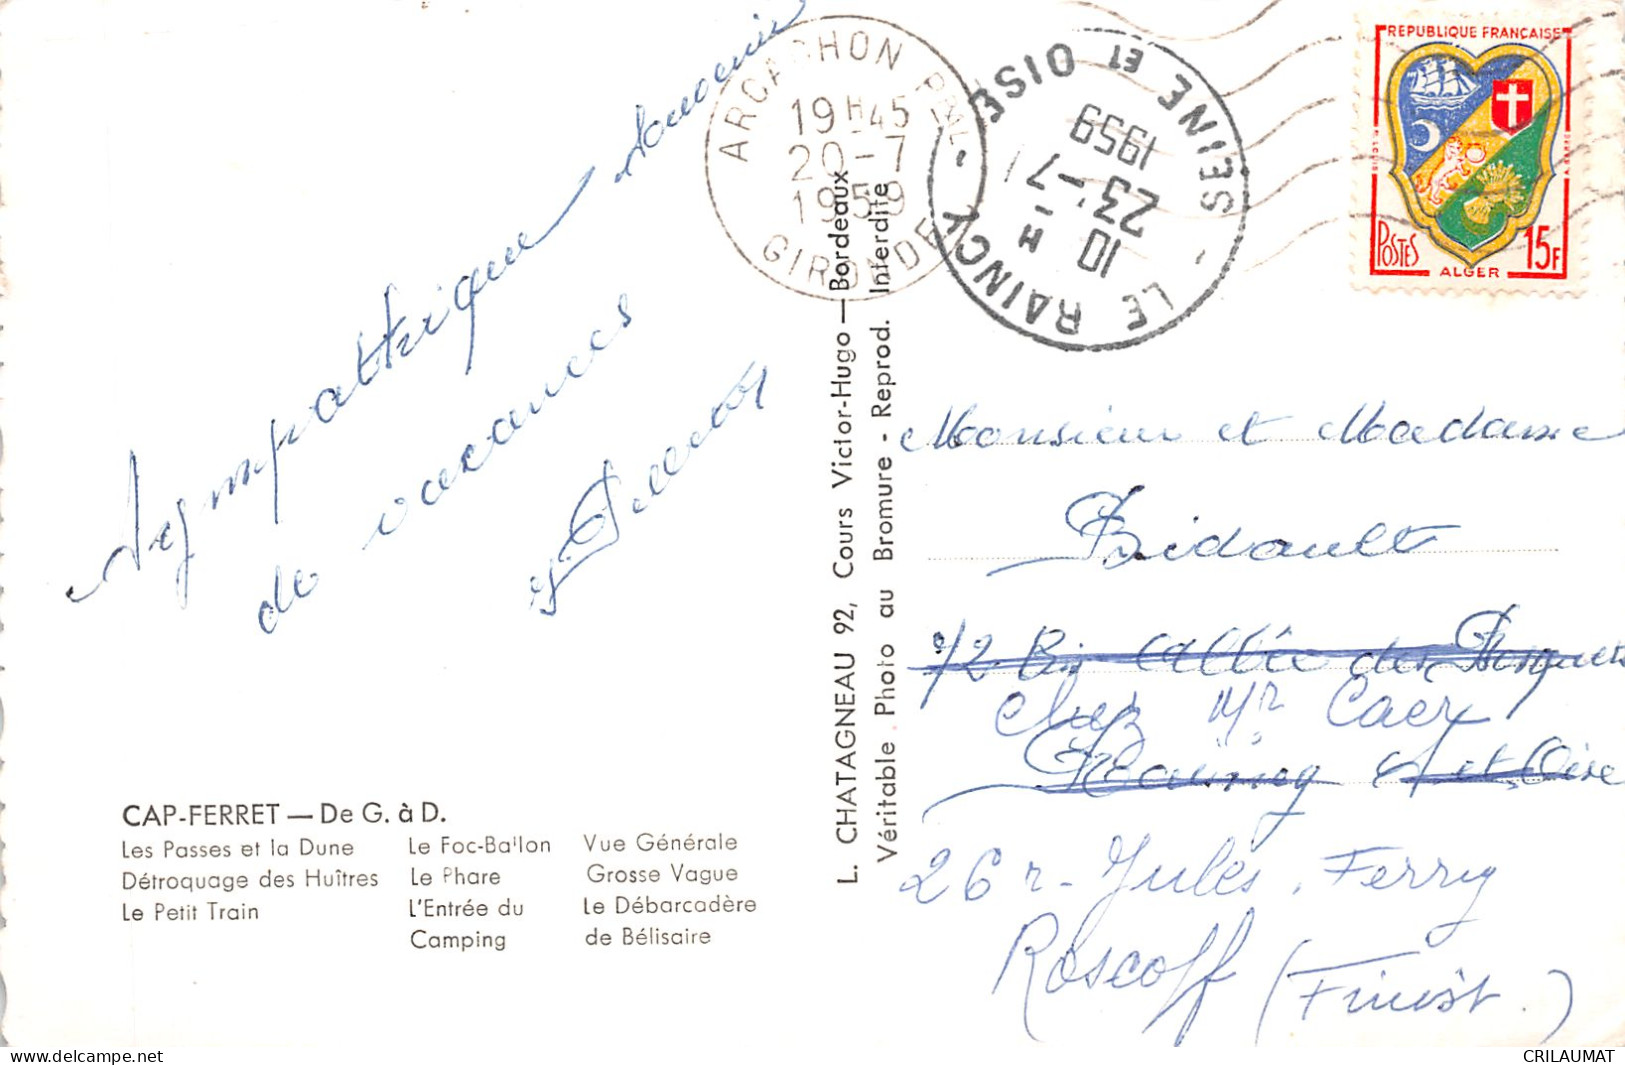 Sympathique souvenir
de vacances
ARCACHON PAL
19H45
20-7
1959
GIRONDE
LE RAINCY - SEINE ET OISE -
10 H
23-7
1959
REPUBLIQUE FRANÇAISE
POSTES
ALGER
15F
L. CHATAGNEAU 92, Cours Victor-Hugo — Bordeaux
Véritable Photo au Bromure - Reprod. Interdite
Monsieur et Madame
Bidault
72 Bis Allée des
chez Mr Caer
S et Oise
26 r. Jules Ferry
Roscoff (Finist.)
CAP-FERRET — De G. à D.
Les Passes et la Dune
Détroquage des Huîtres
Le Petit Train
Le Foc-Ballon
Le Phare
L'Entrée du
Camping
Vue Générale
Grosse Vague
Le Débarcadère
de Bélisaire
delcampe.net
CRILAUMAT